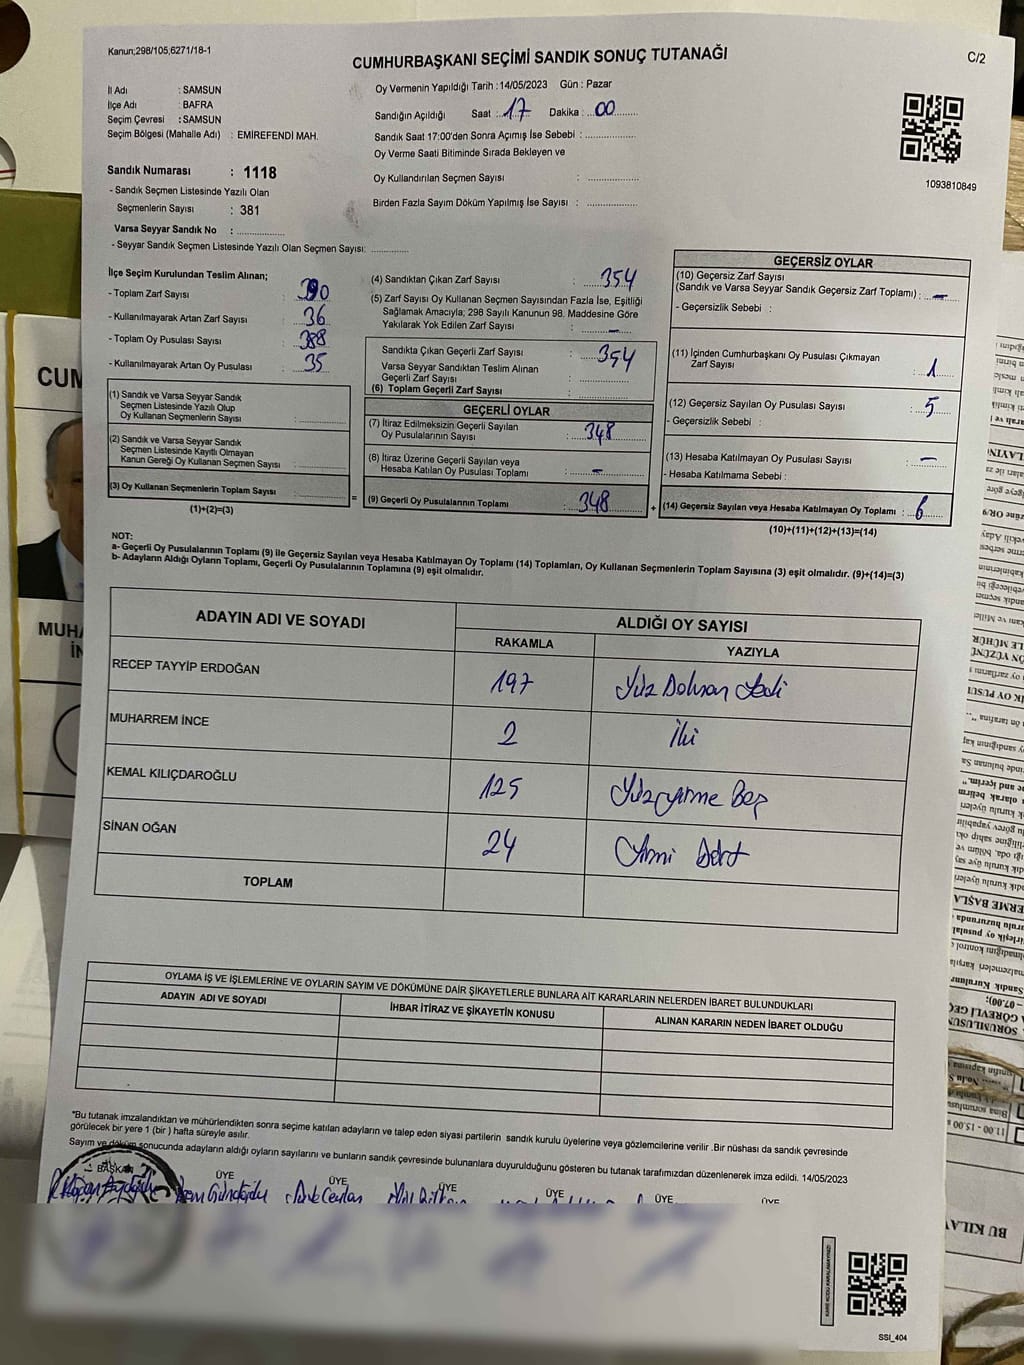 Kanun;298/105,6271/18-1
CUMHURBAŞKANI SEÇİMİ SANDIK SONUÇ TUTANAĞI
C/2
İl Adı : SAMSUN
İlçe Adı : BAFRA
Seçim Çevresi : SAMSUN
Seçim Bölgesi (Mahalle Adı) : EMİREFENDİ MAH.
Sandık Numarası : 1118
- Sandık Seçmen Listesinde Yazılı Olan
Seçmenlerin Sayısı : 381
Varsa Seyyar Sandık No : ..............
- Seyyar Sandık Seçmen Listesinde Yazılı Olan Seçmen Sayısı: ............
Oy Vermenin Yapıldığı Tarih : 14/05/2023 Gün : Pazar
Sandığın Açıldığı Saat : 17 Dakika : 00
Sandık Saat 17:00'den Sonra Açımış İse Sebebi : ..............
Oy Verme Saati Bitiminde Sırada Bekleyen ve
Oy Kullandırılan Seçmen Sayısı : ..............
Birden Fazla Sayım Döküm Yapılmış İse Sayısı : ..............
1093810849
İlçe Seçim Kurulundan Teslim Alınan;
- Toplam Zarf Sayısı : 390
- Kullanılmayarak Artan Zarf Sayısı : 36
- Toplam Oy Pusulası Sayısı : 388
- Kullanılmayarak Artan Oy Pusulası : 35
(1) Sandık ve Varsa Seyyar Sandık
Seçmen Listesinde Yazılı Olup
Oy Kullanan Seçmenlerin Sayısı : ..............
(2) Sandık ve Varsa Seyyar Sandık
Seçmen Listesinde Kayıtlı Olmayan
Kanun Gereği Oy Kullanan Seçmen Sayısı : ..............
(3) Oy Kullanan Seçmenlerin Toplam Sayısı : ..............
(1)+(2)=(3)
=
(4) Sandıktan Çıkan Zarf Sayısı : 354
(5) Zarf Sayısı Oy Kullanan Seçmen Sayısından Fazla İse, Eşitliği
Sağlamak Amacıyla; 298 Sayılı Kanunun 98. Maddesine Göre
Yakılarak Yok Edilen Zarf Sayısı : –
Sandıkta Çıkan Geçerli Zarf Sayısı : 354
Varsa Seyyar Sandıktan Teslim Alınan
Geçerli Zarf Sayısı : ..............
(6) Toplam Geçerli Zarf Sayısı : ..............
GEÇERLİ OYLAR
(7) İtiraz Edilmeksizin Geçerli Sayılan
Oy Pusulalarının Sayısı : 348
(8) İtiraz Üzerine Geçerli Sayılan veya
Hesaba Katılan Oy Pusulası Toplamı : –
(9) Geçerli Oy Pusulalarının Toplamı : 348
+
GEÇERSİZ OYLAR
(10) Geçersiz Zarf Sayısı
(Sandık ve Varsa Seyyar Sandık Geçersiz Zarf Toplamı) : –
- Geçersizlik Sebebi :
(11) İçinden Cumhurbaşkanı Oy Pusulası Çıkmayan
Zarf Sayısı : 1
(12) Geçersiz Sayılan Oy Pusulası Sayısı : 5
- Geçersizlik Sebebi :
(13) Hesaba Katılmayan Oy Pusulası Sayısı : –
- Hesaba Katılmama Sebebi :
(14) Geçersiz Sayılan veya Hesaba Katılmayan Oy Toplamı : 6
(10)+(11)+(12)+(13)=(14)
NOT:
a- Geçerli Oy Pusulalarının Toplamı (9) ile Geçersiz Sayılan veya Hesaba Katılmayan Oy Toplamı (14) Toplamları, Oy Kullanan Seçmenlerin Toplam Sayısına (3) eşit olmalıdır. (9)+(14)=(3)
b- Adayların Aldığı Oyların Toplamı, Geçerli Oy Pusulalarının Toplamına (9) eşit olmalıdır.
ADAYIN ADI VE SOYADI
ALDIĞI OY SAYISI
RAKAMLA YAZIYLA
RECEP TAYYİP ERDOĞAN 197 Yüz Doksan Yedi
MUHARREM İNCE 2 İki
KEMAL KILIÇDAROĞLU 125 Yüzyirme Beş
SİNAN OĞAN 24 Yirmi Dört
TOPLAM
OYLAMA İŞ VE İŞLEMLERİNE VE OYLARIN SAYIM VE DÖKÜMÜNE DAİR ŞİKAYETLERLE BUNLARA AİT KARARLARIN NELERDEN İBARET BULUNDUKLARI
ADAYIN ADI VE SOYADI İHBAR İTİRAZ VE ŞİKAYETİN KONUSU ALINAN KARARIN NEDEN İBARET OLDUĞU
*Bu tutanak imzalandıktan ve mühürlendikten sonra seçime katılan adayların ve talep eden siyasi partilerin sandık kurulu üyelerine veya gözlemcilerine verilir .Bir nüshası da sandık çevresinde
görülecek bir yere 1 (bir ) hafta süreyle asılır.
Sayım ve döküm sonucunda adayların aldığı oyların sayılarını ve bunların sandık çevresinde bulunanlara duyurulduğunu gösteren bu tutanak tarafımızdan düzenlenerek imza edildi. 14/05/2023
BAŞKAN ÜYE ÜYE ÜYE ÜYE ÜYE ÜYE
KARE KODU KARALAMAYINIZ!
SSI_404
CUM
MUHA
İN
BU KILAV